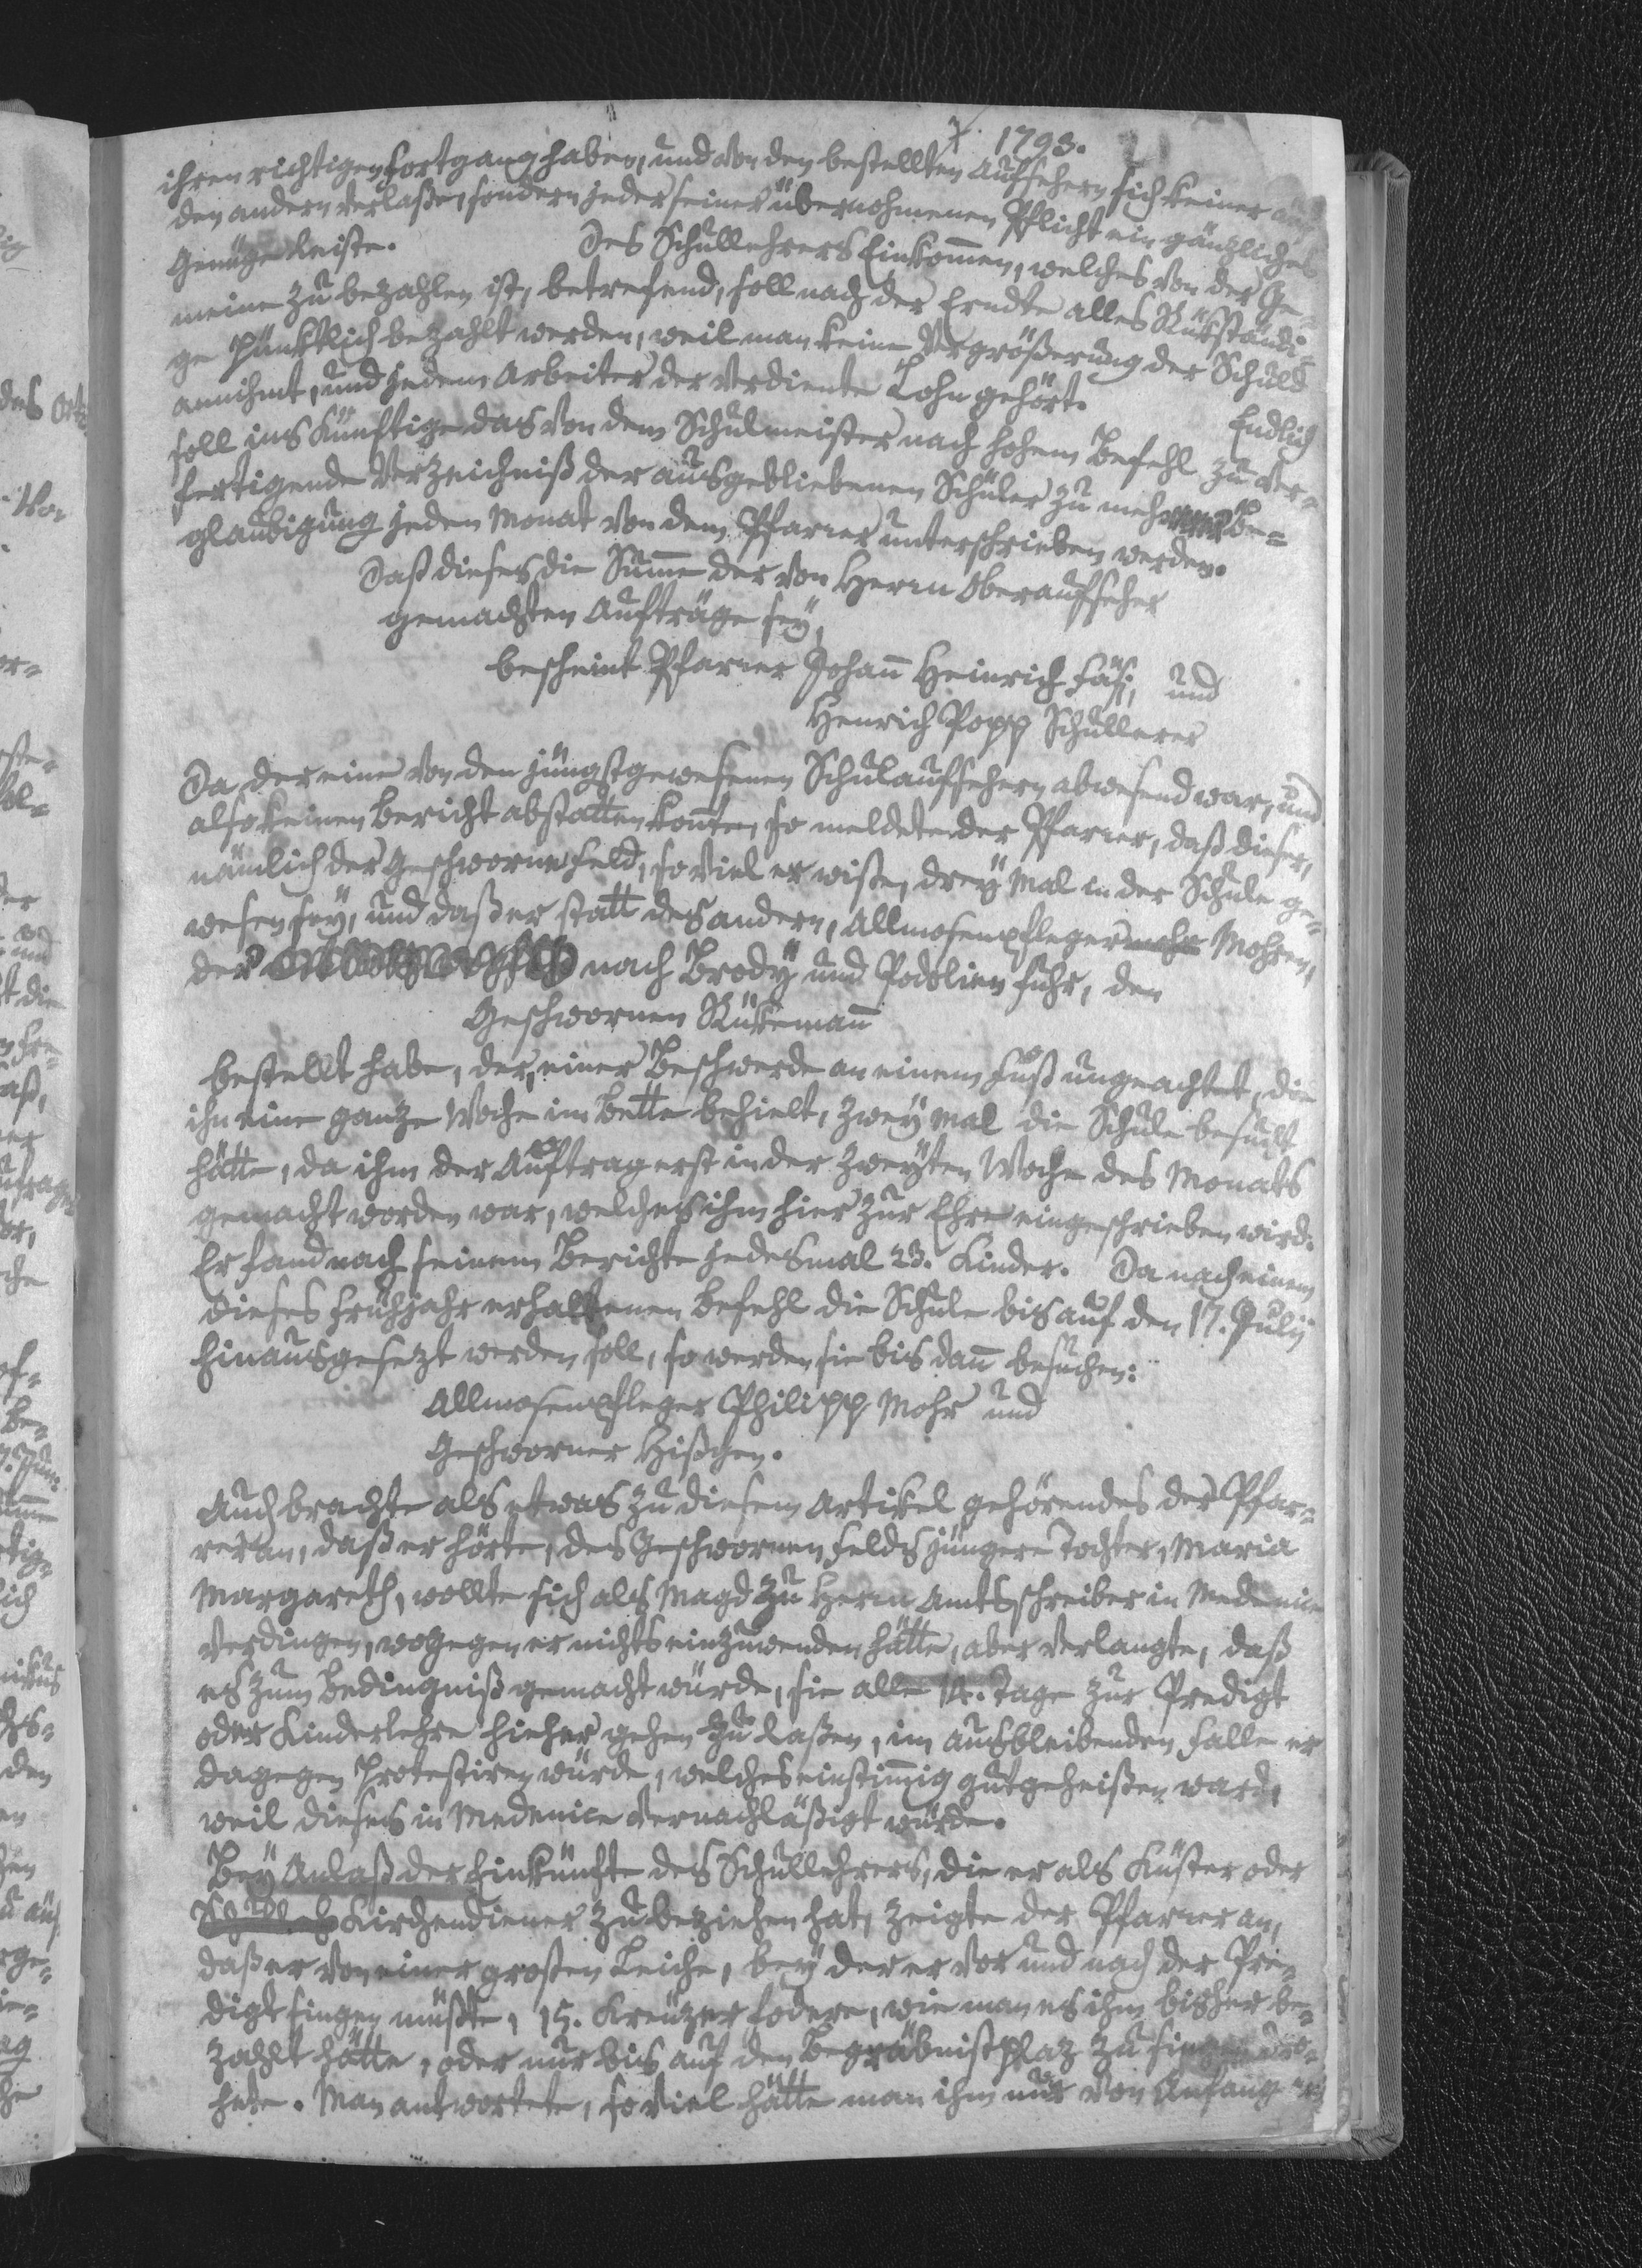 1793.
ihren richtigen Fortgang haben, und von den bestellten Aufsehern sich keiner auf
den andern verlaße, sondern jeder seiner übernohmenen Pflicht ein gänzliches
Genügen leiste. Des Schullehrers Einkom̄en, welches von der Ge-
meine zu bezahlen ist, betrefend, soll nach der Erndte alles Rükständi-
ge pünktlich bezahlt werden, weil man keine Vergrößerung der Schuld
annihmt, und jedem Arbeiter der verdiente Lohn gehört. Endlich
soll ins Künftige das von dem Schulmeister nach hohem Befehl zu ver-
fertigende Verzeichniß der ausgebliebenen Schüler zu mehrerer Be-
glaubigung jeden Monat von dem Pfarrer unterschrieben werden.
Daß dieses die Sum̄e der von Herrn Oberaufseher
gemachten Aufträge sey,
bescheint Pfarrer Johan̄ Heinrich Fäsi, und
Henrich Popp Schullerer
Da der eine von den jüngst gewesenen Schulaufsehern abwesend war, und
also keinen Bericht abstatten kon̄te, so meldete der Pfarrer, daß dieser,
nämlich der Geschworne Feld, so viel er wiste, drey Mal in der Schule ge-
wesen sey, und daß er statt des andern, Allmosenpfleger Mohren,
der nach Brody und Podolien fuhr, den
Geschwornen Rükeman̄
bestellt habe, der, einer Beschwerde an einem Fuß ungeachtet, die
ihn eine ganze Woche im Bette behielt, zwey mal die Schule besucht
hätte, da ihm der Auftrag erst in der zweyten Woche des Monats
gemacht worden war, welches ihm hier zur Ehre eingeschrieben wird.
Er fand nach seinem Berichte jedesmal 23. Kinder. Da nach einem
dieses Frühjahr erhaltenen Befehl die Schule bis auf den 17. July
hinausgesezt werden soll, so werden sie bis dan̄ besuchen:
Allmosenpfleger Philipp Mohr und
Geschworner Hißchen.
Auch brachte als etwas zu diesem Artikel gehörendes der Pfar-
rer an, daß er hörte, des Geschwornen Felds jüngere Tochter, Maria
Margareth, wollte sich als Magd zu Herrn Amtsschreiber in Medenice
verdingen, wogegen er nichts einzuwenden hätte, aber verlangte, daß
es zum Bedingniß gemacht würde, sie alle 14. Tage zur Predigt
oder Kinderlehre hieher gehen zu laßen, im ausbleibenden Falle er
dagegen protestiren würde, welches einstim̄ig gutgeheißen ward,
weil dieses in Medenice vernachläßigt würde.
Bey Anlaß der Einkünfte des Schullehrers, die er als Küster oder
Kirchendiener zu beziehen hat, zeigte der Pfarrer an,
daß er von einer großen Leiche, bey der er vor und nach der Pre-
digt singen müßte, 15. Kreuzer fodere, wie man es ihm bisher be-
zahlt hätte, oder nur bis auf den Begräbnißplaz zu singen dro-
hete. Man antwortete, so viel hätte man ihm nur von Anfang